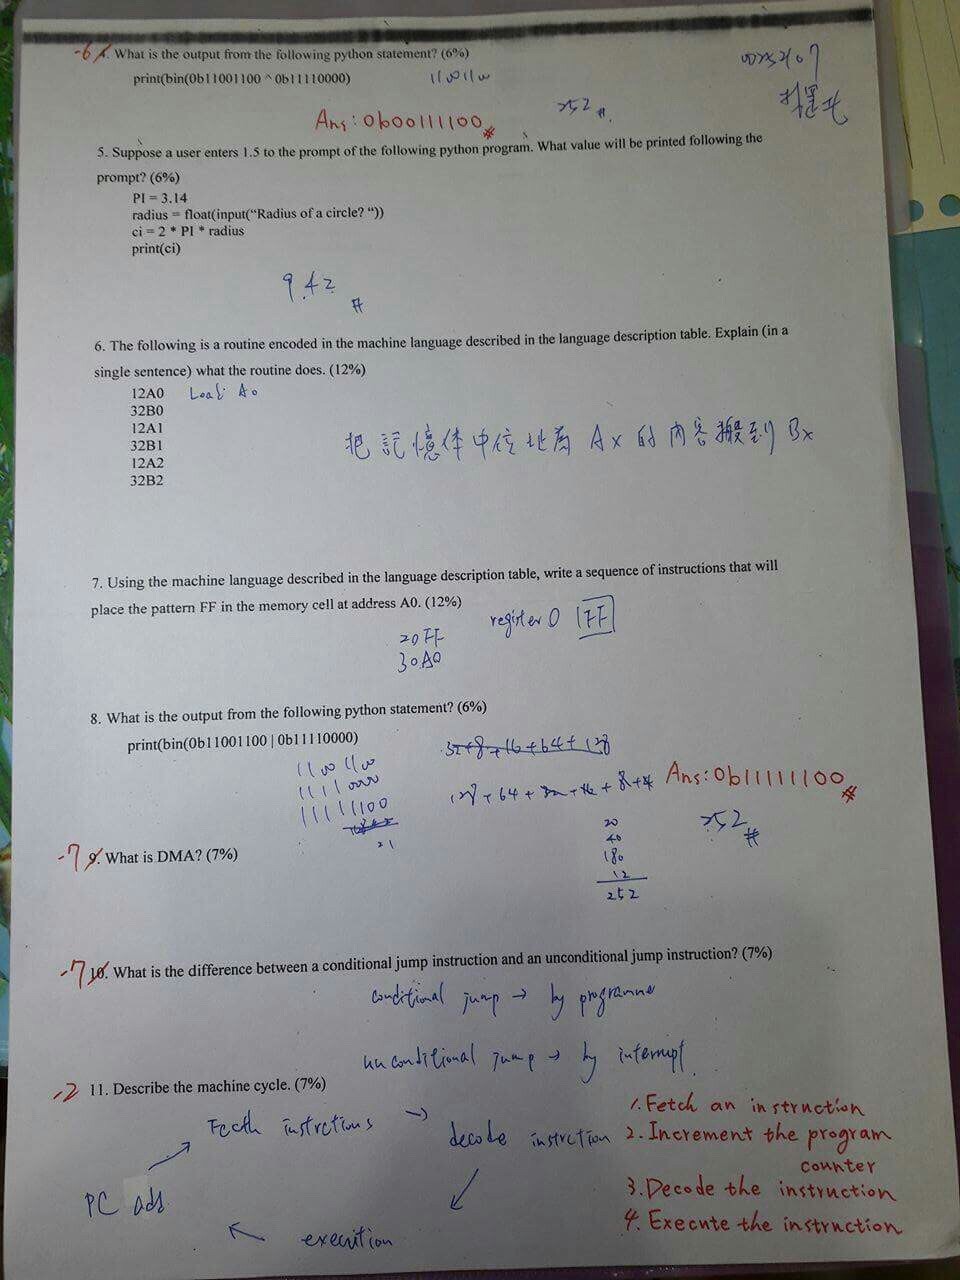 -6 4. What is the output from the following python statement? (6%)
print(bin(0b11001100 ^ 0b11110000)
11001100
252 #.
Ans: 0b00111100 #
5. Suppose a user enters 1.5 to the prompt of the following python program. What value will be printed following the
prompt? (6%)
PI = 3.14
radius = float(input("Radius of a circle? "))
ci = 2 * PI * radius
print(ci)
9.42 #
6. The following is a routine encoded in the machine language described in the language description table. Explain (in a
single sentence) what the routine does. (12%)
12A0 Load A0
32B0
12A1
32B1
12A2
32B2
把記憶体中位址為 Ax 的內容搬到 Bx
7. Using the machine language described in the language description table, write a sequence of instructions that will
place the pattern FF in the memory cell at address A0. (12%)
register 0 FF
20FF
30A0
8. What is the output from the following python statement? (6%)
print(bin(0b11001100 | 0b11110000)
11001100
11110000
11111100
21
32+8+16+64+128
128+64+32+16+8+4
Ans: 0b11111100 #
20
40
180
12
252
252 #
-7 9. What is DMA? (7%)
-7 10. What is the difference between a conditional jump instruction and an unconditional jump instruction? (7%)
conditional jump → by programmer
unconditional jump → by interrupt.
-2 11. Describe the machine cycle. (7%)
Fecth instrctions →
decode instrction
execution
PC add
1. Fetch an instruction
2. Increment the program
counter
3. Decode the instruction
4. Execute the instruction